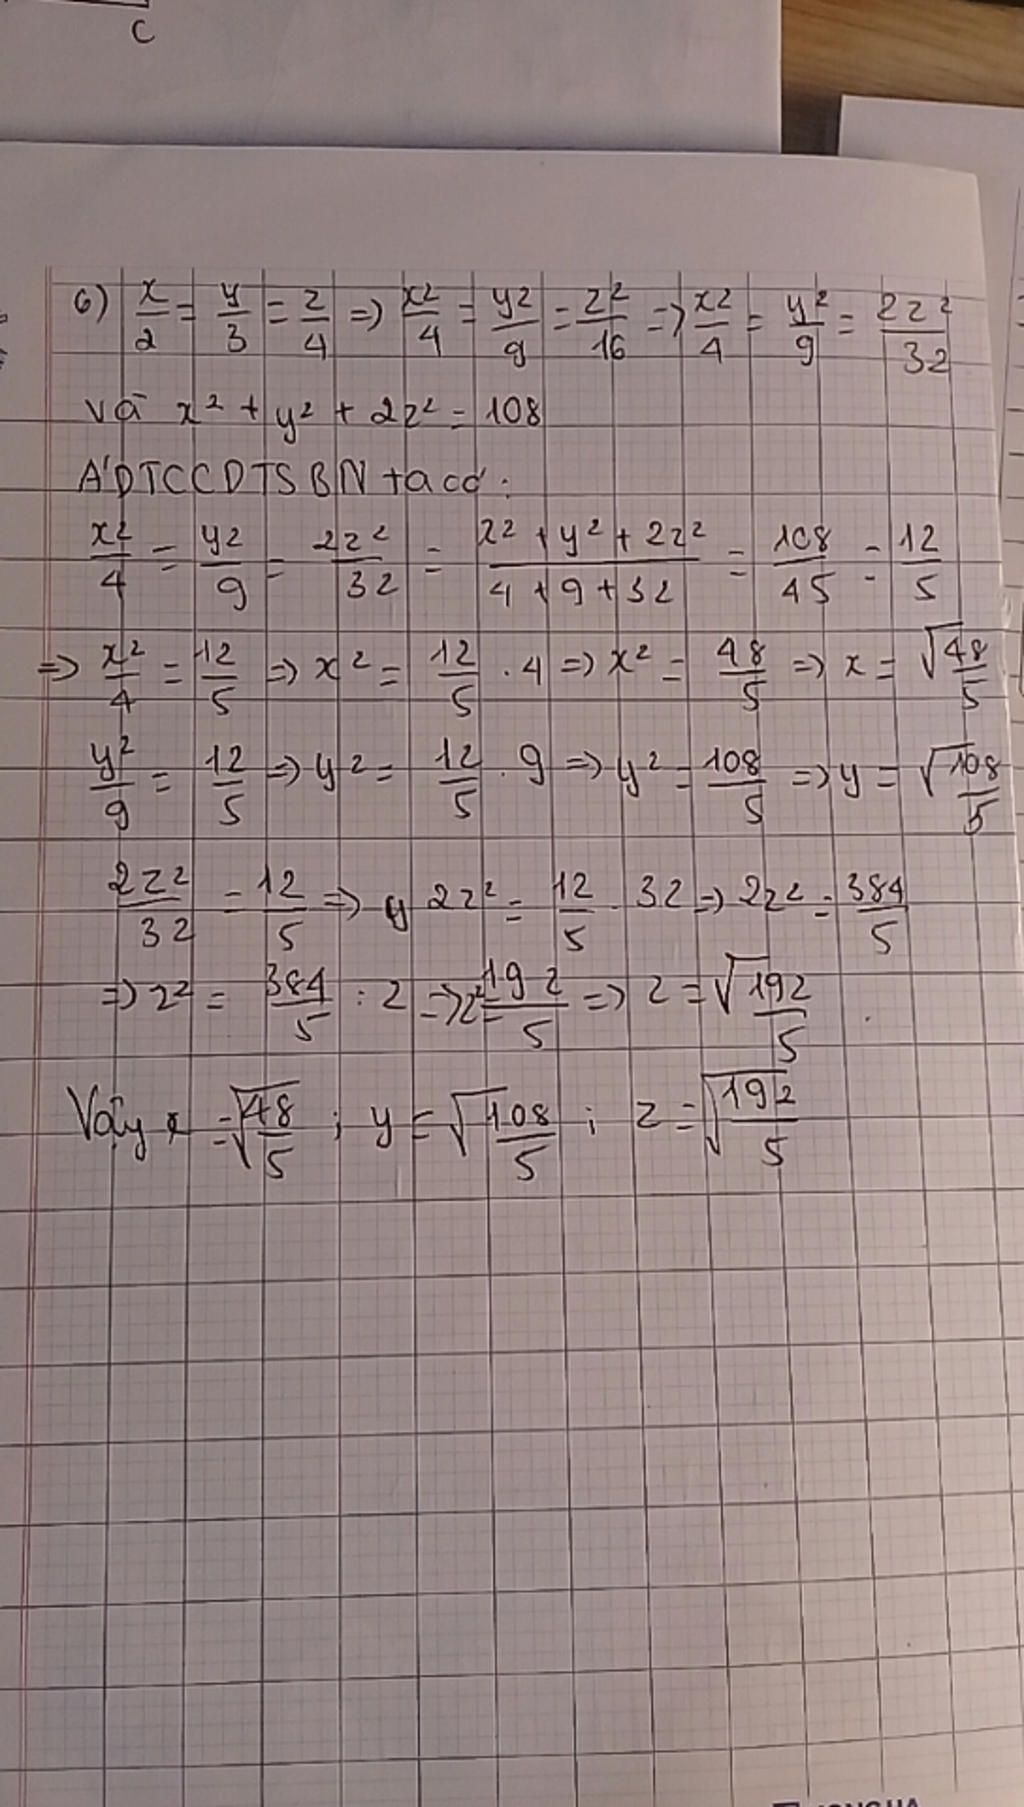 C
6) x/2 = y/3 = z/4 => x²/4 = y²/9 = z²/16 => x²/4 = y²/9 = 2z²/32
và x² + y² + 2z² = 108
ÁDTCCDTSBN ta có :
x²/4 = y²/9 = 2z²/32 = (x² + y² + 2z²)/(4 + 9 + 32) = 108/45 = 12/5
=> x²/4 = 12/5 => x² = 12/5 . 4 => x² = 48/5 => x = √48/5
y²/9 = 12/5 => y² = 12/5 . 9 => y² = 108/5 => y = √108/5
2z²/32 = 12/5 => y 2z² = 12/5 . 32 => 2z² = 384/5
=> z² = 384/5 : 2 => z² = 192/5 => z = √192/5
Vậy x = √48/5 ; y = √108/5 ; z = √192/5